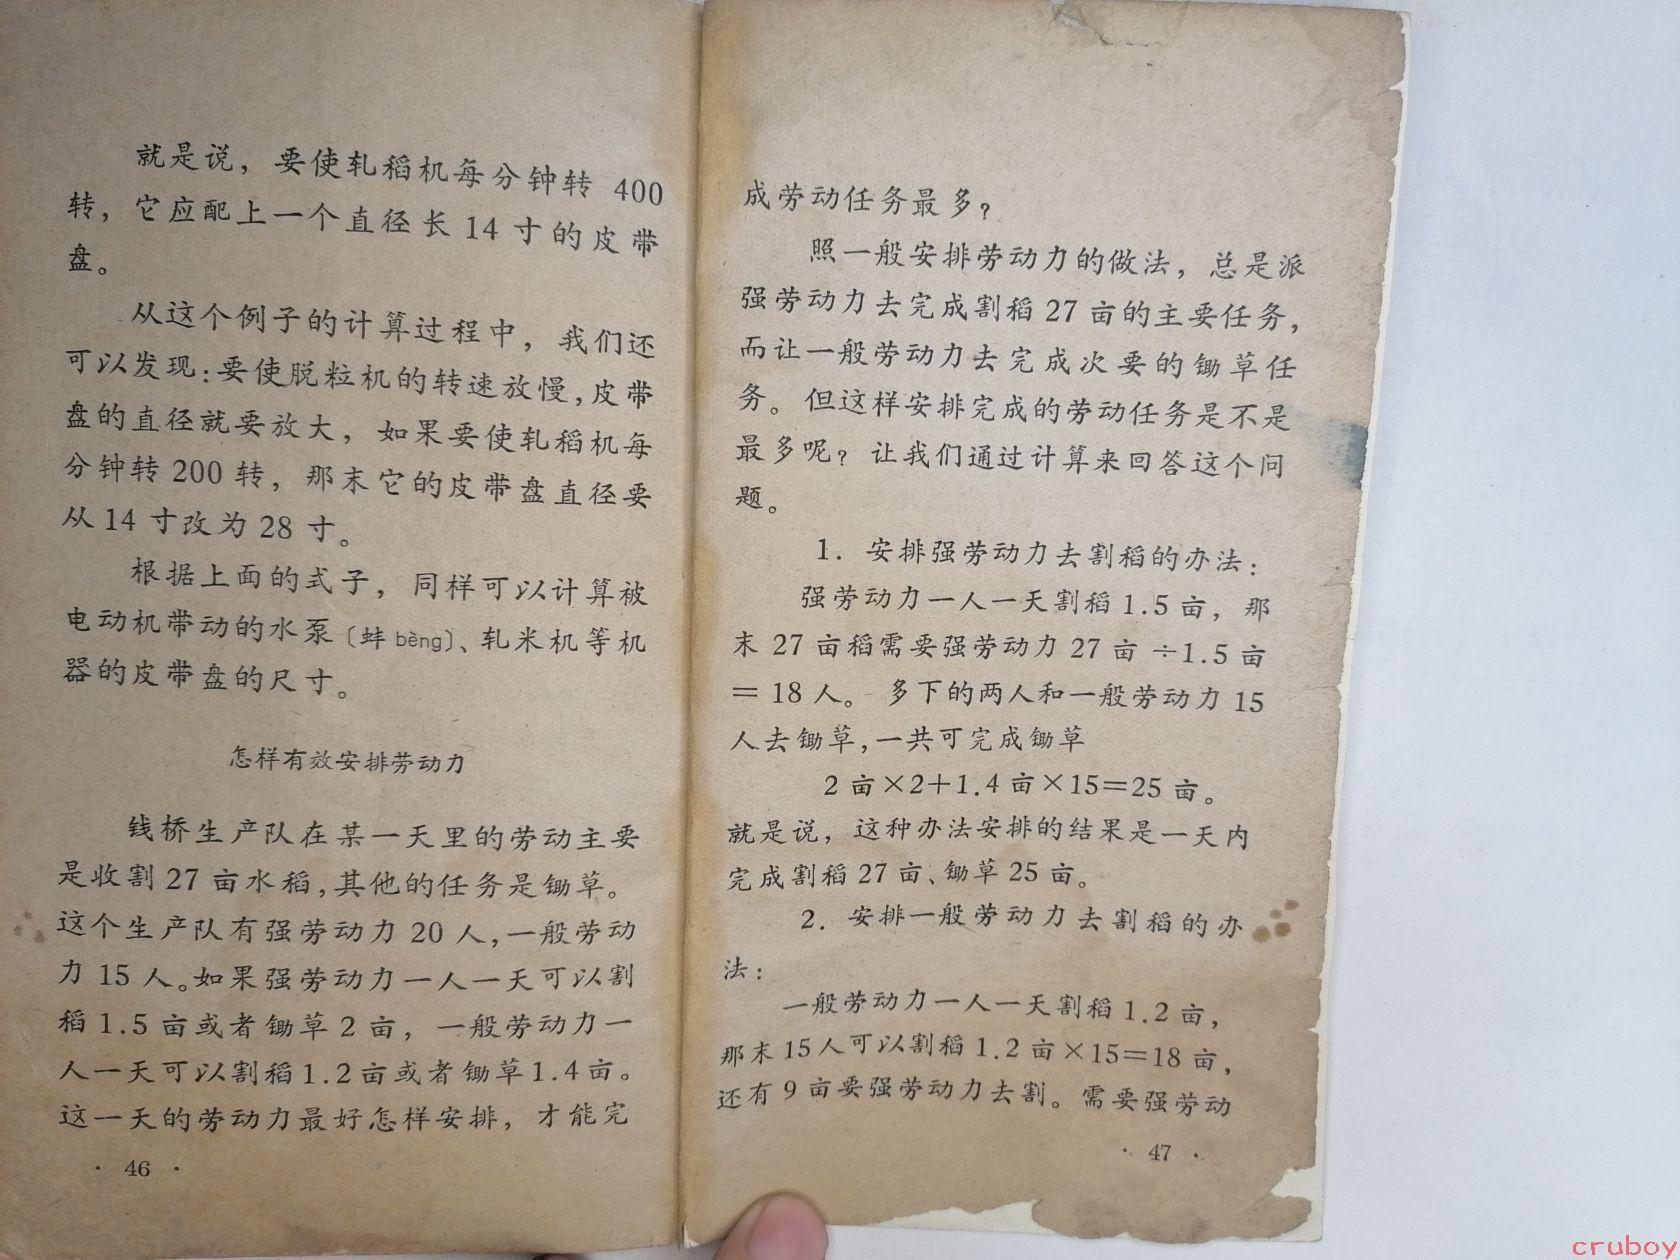 就是说，要使轧稻机每分钟转 400
转，它应配上一个直径长 14 寸的皮带
盘。
从这个例子的计算过程中，我们还
可以发现:要使脱粒机的转速放慢,皮带
盘的直径就要放大，如果要使轧稻机每
分钟转 200 转，那末它的皮带盘直径要
从 14 寸改为 28 寸。
根据上面的式子，同样可以计算被
电动机带动的水泵〔蚌 bèng〕、轧米机等机
器的皮带盘的尺寸。
怎样有效安排劳动力
钱桥生产队在某一天里的劳动主要
是收割 27 亩水稻,其他的任务是锄草。
这个生产队有强劳动力 20 人,一般劳动
力 15 人。如果强劳动力一人一天可以割
稻 1.5 亩或者锄草 2 亩，一般劳动力一
人一天可以割稻 1.2 亩或者锄草 1.4 亩。
这一天的劳动力最好怎样安排，才能完
· 46 ·
成劳动任务最多？
照一般安排劳动力的做法，总是派
强劳动力去完成割稻 27 亩的主要任务，
而让一般劳动力去完成次要的锄草任
务。但这样安排完成的劳动任务是不是
最多呢？让我们通过计算来回答这个问
题。
1. 安排强劳动力去割稻的办法：
强劳动力一人一天割稻 1.5 亩，那
末 27 亩稻需要强劳动力 27 亩 ÷1.5 亩
＝ 18 人。多下的两人和一般劳动力 15
人去锄草,一共可完成锄草
2 亩×2＋1.4 亩×15＝25 亩。
就是说，这种办法安排的结果是一天内
完成割稻 27 亩、锄草 25 亩。
2. 安排一般劳动力去割稻的办
法：
一般劳动力一人一天割稻 1.2 亩，
那末 15 人可以割稻 1.2 亩×15＝18 亩，
还有 9 亩要强劳动力去割。需要强劳动
· 47 ·
cruboy